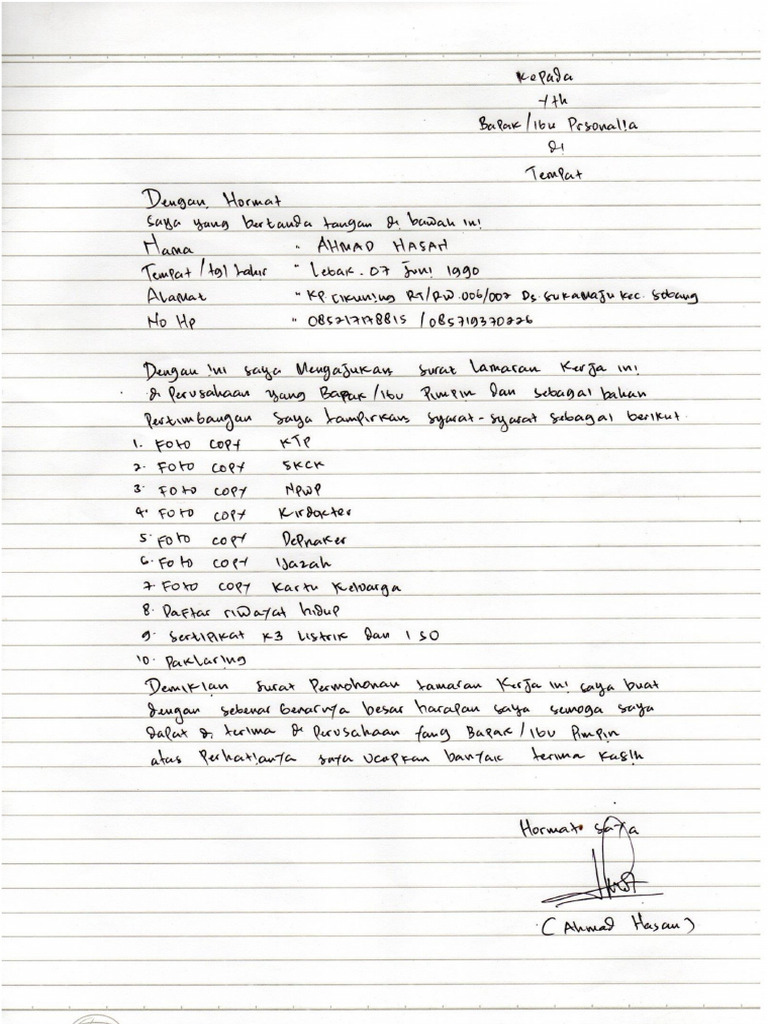 Kepada
Yth
Bapak/Ibu Prsonalia
di
Tempat
Dengan, Hormat
Saya yang bertanda tangan di bawah ini
Nama : AHMAD HASAN
Tempat/tgl Lahir : Lebak. 07 Juni 1990
Alamat : KP. Cikuning RT/RW.006/002 Ds. Sukamaju Kec. Sobang
No Hp : 085217178815 /085719370226
Dengan ini saya Mengajukan surat Lamaran Kerja ini
di Perusahaan yang Bapak/Ibu Pimpin dan sebagai bahan
Pertimbangan Saya lampirkan syarat-syarat sebagai berikut.
1. Foto copy KTP
2. Foto copy SKCK
3. Foto copy NPWP
4. Foto copy Kirdokter
5. Foto copy Depnaker
6. Foto copy Ijazah
7. Foto copy Kartu Keluarga
8. Daftar riwayat hidup
9. Sertipikat K3 Listrik dan ISO
10. Paklaring
Demikian surat Permohonan lamaran Kerja ini saya buat
dengan sebenar benarnya besar harapan saya semoga saya
dapat di terima di perusahaan yang Bapak/Ibu Pimpin
atas Perhatianya saya ucapkan banyak terima kasih
Hormat saya
(Ahmad Hasan)